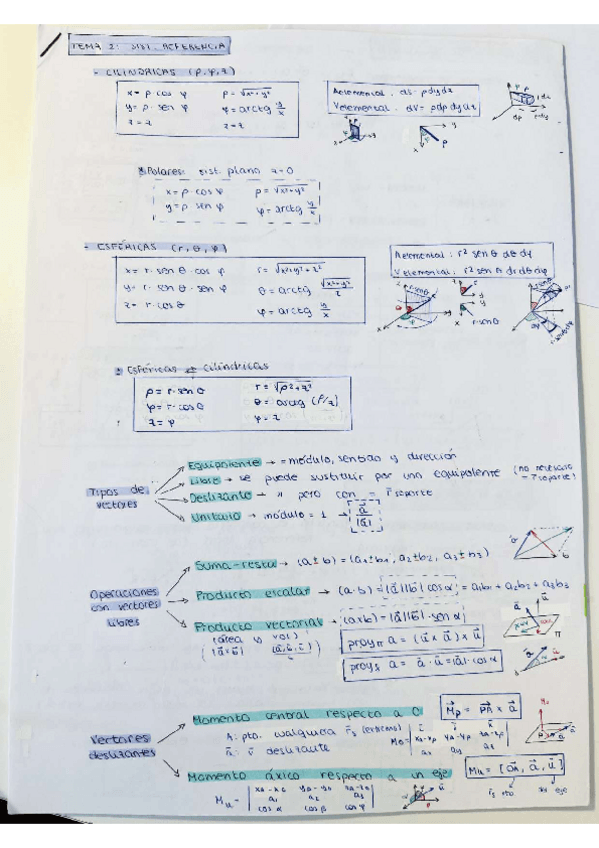 TEMA 2: SIST. REFERENCIA
- CILÍNDRICAS (ρ, φ, z)
x = ρ cos φ    ρ = √x²+y²
y = ρ · sen φ    φ = arctg y/x
z = z    z = z
Aelemental: ds = ρdφdz
Velemental: dV = ρdρdφdz
* Polares: sist. plano z=0
x = ρ · cos φ    ρ = √x²+y²
y = ρ · sen φ    φ = arctg y/x
- ESFÉRICAS (r, θ, φ)
x = r · sen θ · cos φ    r = √x²+y²+z²
y = r · sen θ · sen φ    θ = arctg √x²+y²/z
z = r · cos θ    φ = arctg y/x
Aelemental: r² sen θ dθ dφ
Velemental: r² sen θ dr dθ dφ
Esféricas ⇄ Cilíndricas
ρ = r · sen θ    r = √ρ²+z²
φ = r · cos θ    θ = arctg (ρ/z)
z = φ    φ = z
Tipos de vectores
Equipolente → = módulo, sentido y dirección
Libre → se puede sustituir por uno equipolente (no necesario = r soporte)
Deslizante → " pero con = r soporte
Unitario → módulo = 1 → a/|a|
Operaciones con vectores libres
Suma-resta → (a±b) = (a₁±b₁, a₂±b₂, a₃±b₃)
Producto escalar → (a·b) = |a||b| cos α = a₁b₁ + a₂b₂ + a₃b₃
Producto vectorial → (axb) = |a||b| · sen α
(área y vol)
proy π a = (u x a) x u
proy s a = a · u = |a| · cos α
Vectores deslizantes
Momento central respecto a O
Mp = PA x a
A: pto. cualquiera rs
a: v deslizante
Momento áxico respecto a un eje
Mu = [OA, a, u]
cos α    cos β